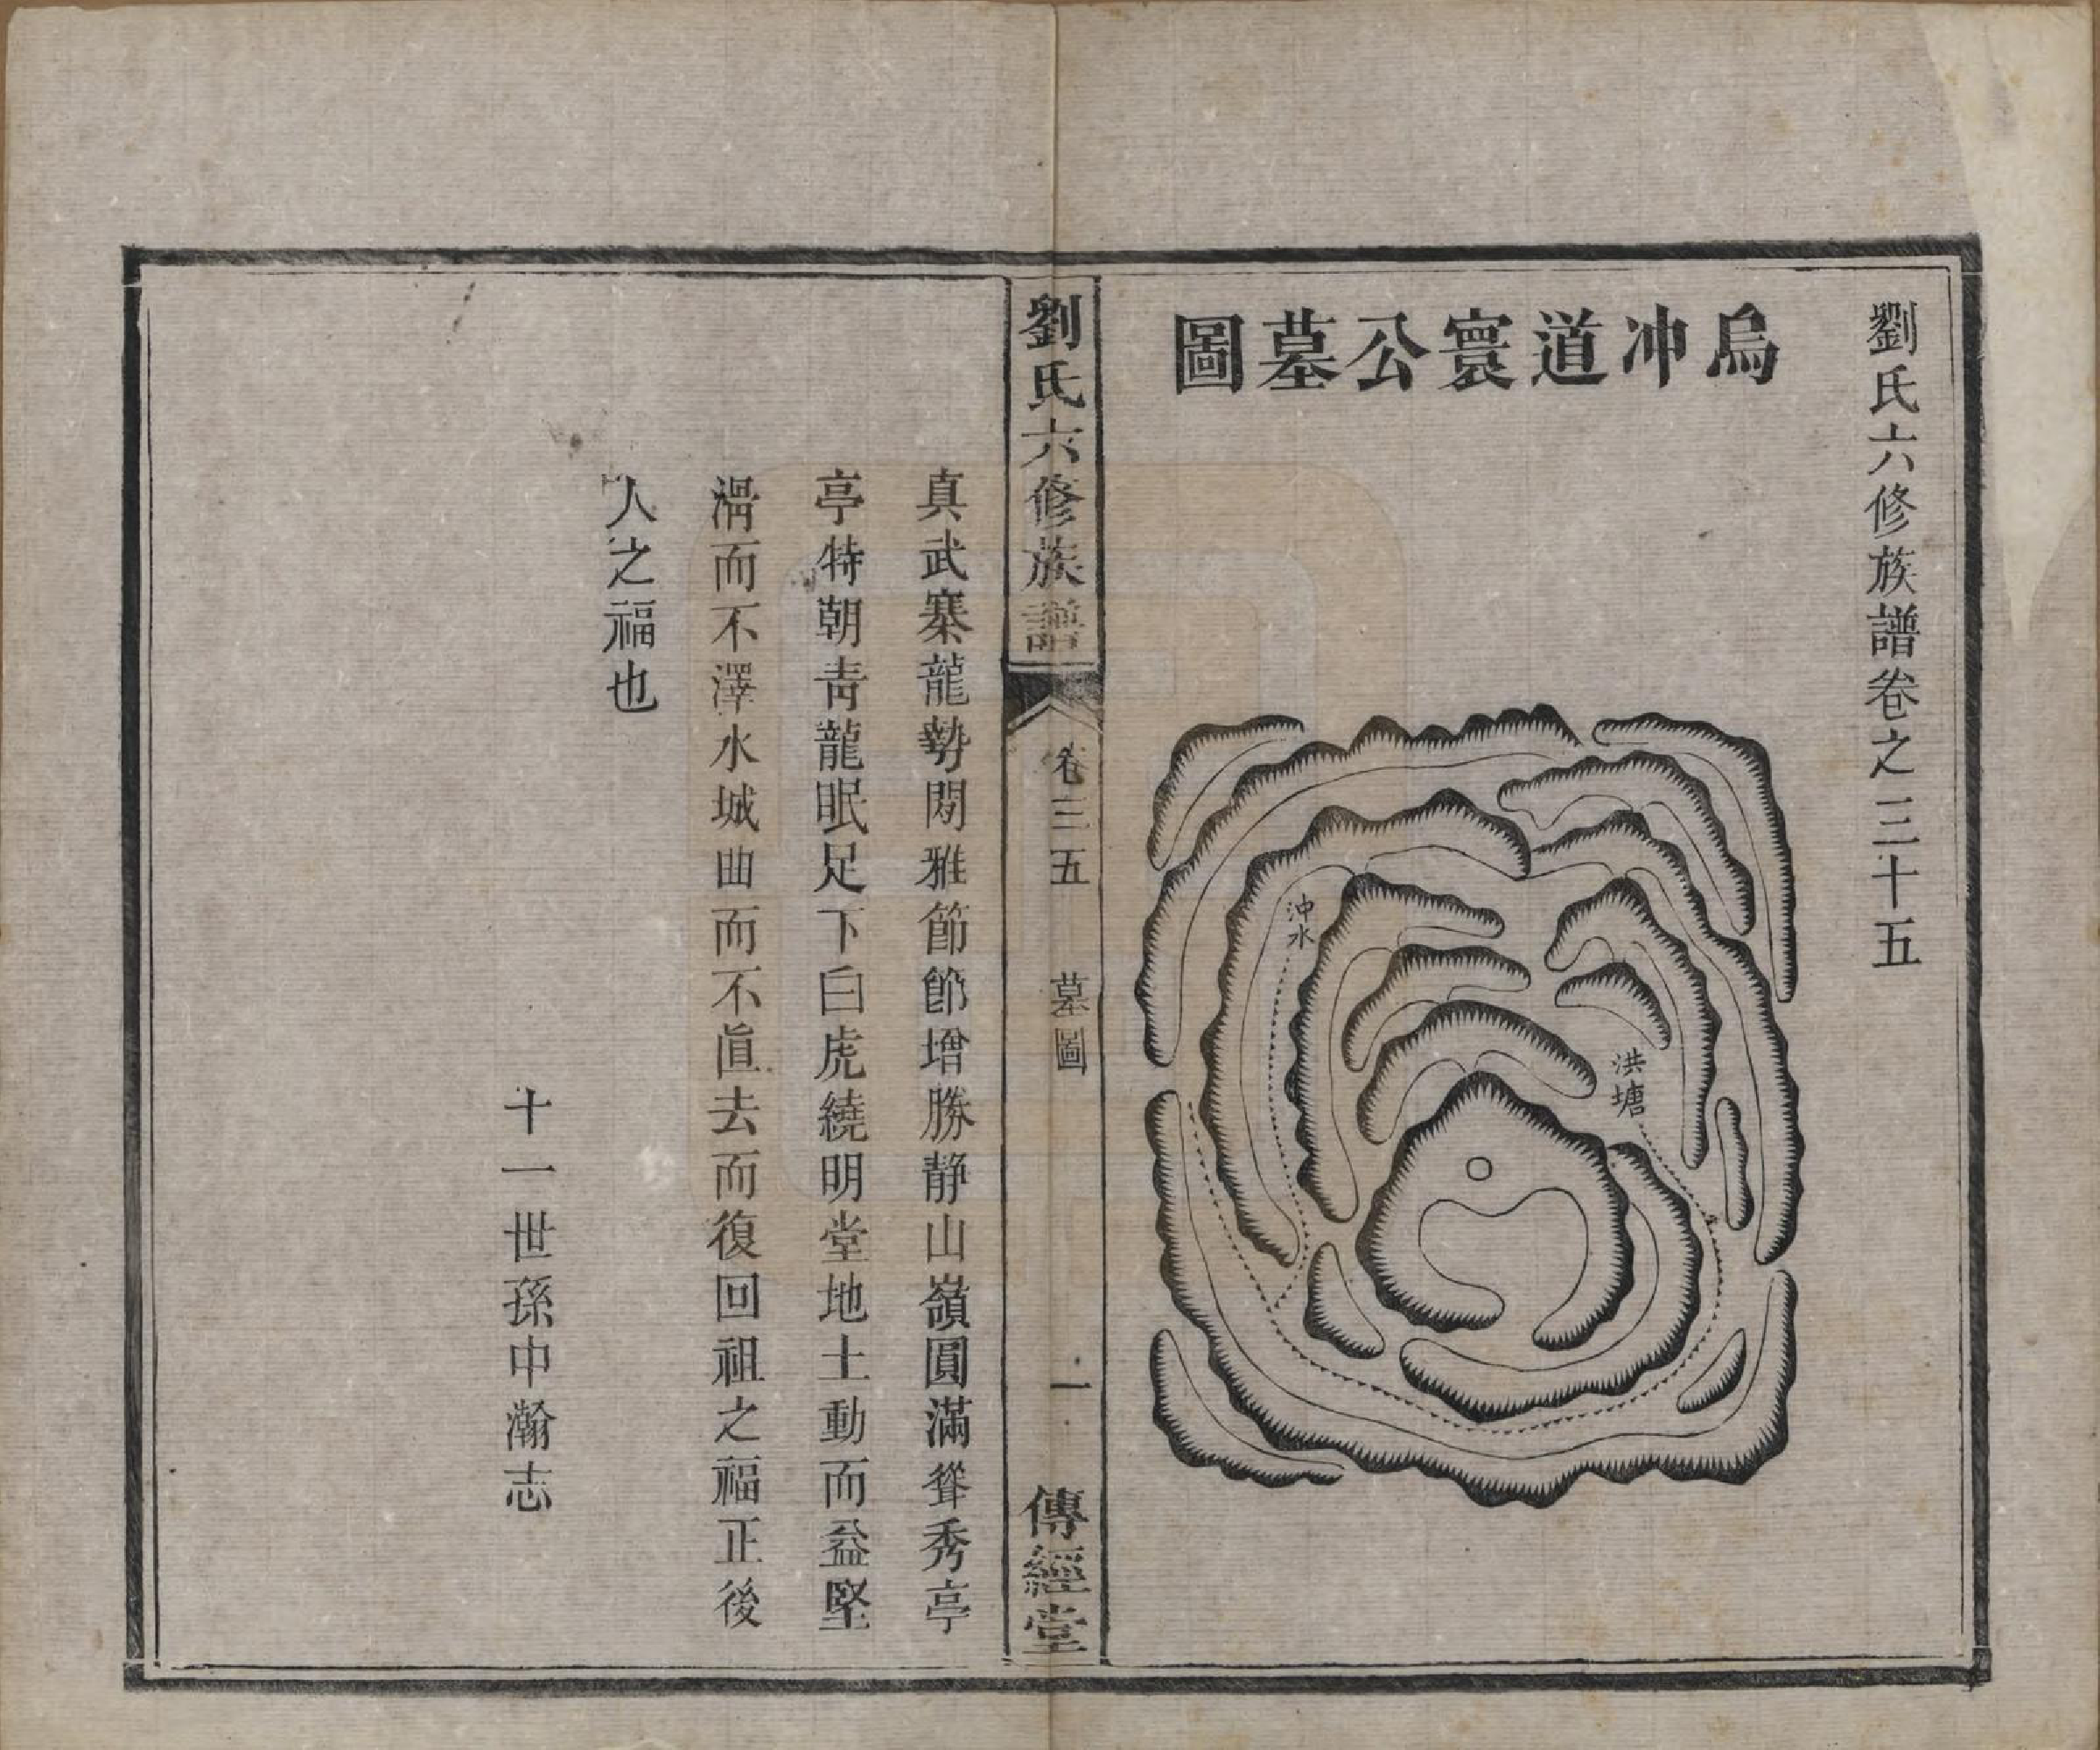 劉氏六修族譜卷之三十五
烏冲道寰公墓圖
冲水
洪塘
劉氏六修族譜
卷三五
墓圖
一
傳經堂
真武寨龍勢閎雅節節增勝靜山嶺圓滿聳秀亭
亭特朝靑龍眠足下白虎繞明堂地土動而益堅
渭而不澤水城曲而不眞去而復回祖之福正後
人之福也
十一世孫中瀚志